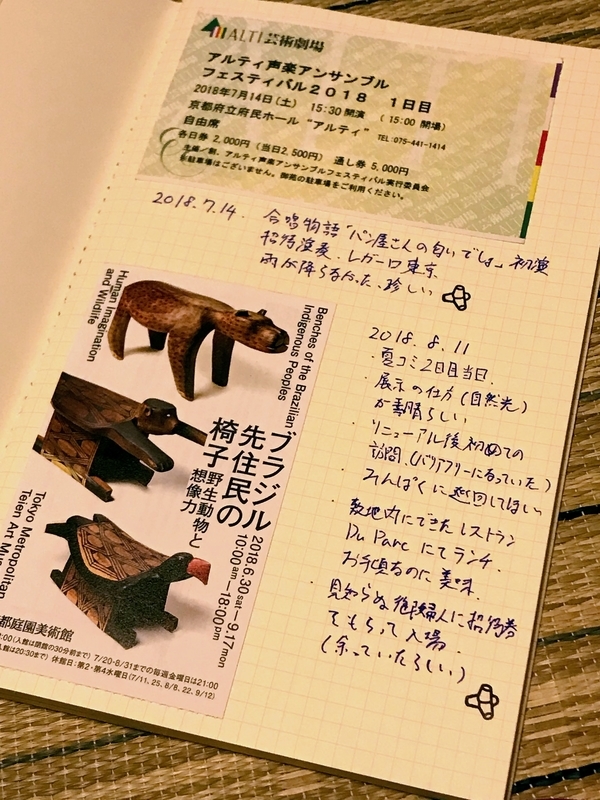 ALTI芸術劇場
アルティ声楽アンサンブル
フェスティバル2018 1日目
2018年7月14日(土) 15:30開演 (15:00 開場)
京都府立府民ホール“アルティ” TEL:075-441-1414
自由席
各日券 2,000円(当日2,500円) 通し券 5,000円
主催/制、アルティ声楽アンサンブルフェスティバル実行委員会
※駐車場はございません。御苑の駐車場をご利用ください。
2018.7.14. 合唱物語「パン屋さんの匂いでしょ」初演
招待演奏・レガーロ東京
雨が降らなかった、珍しい
Human Imagination
and Wildlife
Benches of the Brazilian
Indigenous Peoples
ブラジル
先住民の
椅子
野生動物と
想像力
2018.6.30 sat–9.17 mon
10:00am–18:00pm
Tokyo Metropolitan
Teien Art Mus
都庭園美術館
:00(入館は閉館の30分前まで) 7/20-8/31までの毎週金曜日は21:00
(入館は20:30まで) 休館日:第2・第4水曜日(7/11, 25, 8/8, 22, 9/12)
2018.8.11
・夏コミ2日目当日.
・展示の仕方(自然光)
が素晴らしい
・リニューアル後初めての
訪問.(バリアフリーになっていた)
・みんぱくに巡回してほしい
・敷地内にできたレストラン
Du Parc にてランチ.
お手頃なのに美味.
・見知らぬ御婦人に招待券
をもらって入場.
(余っていたらしい)